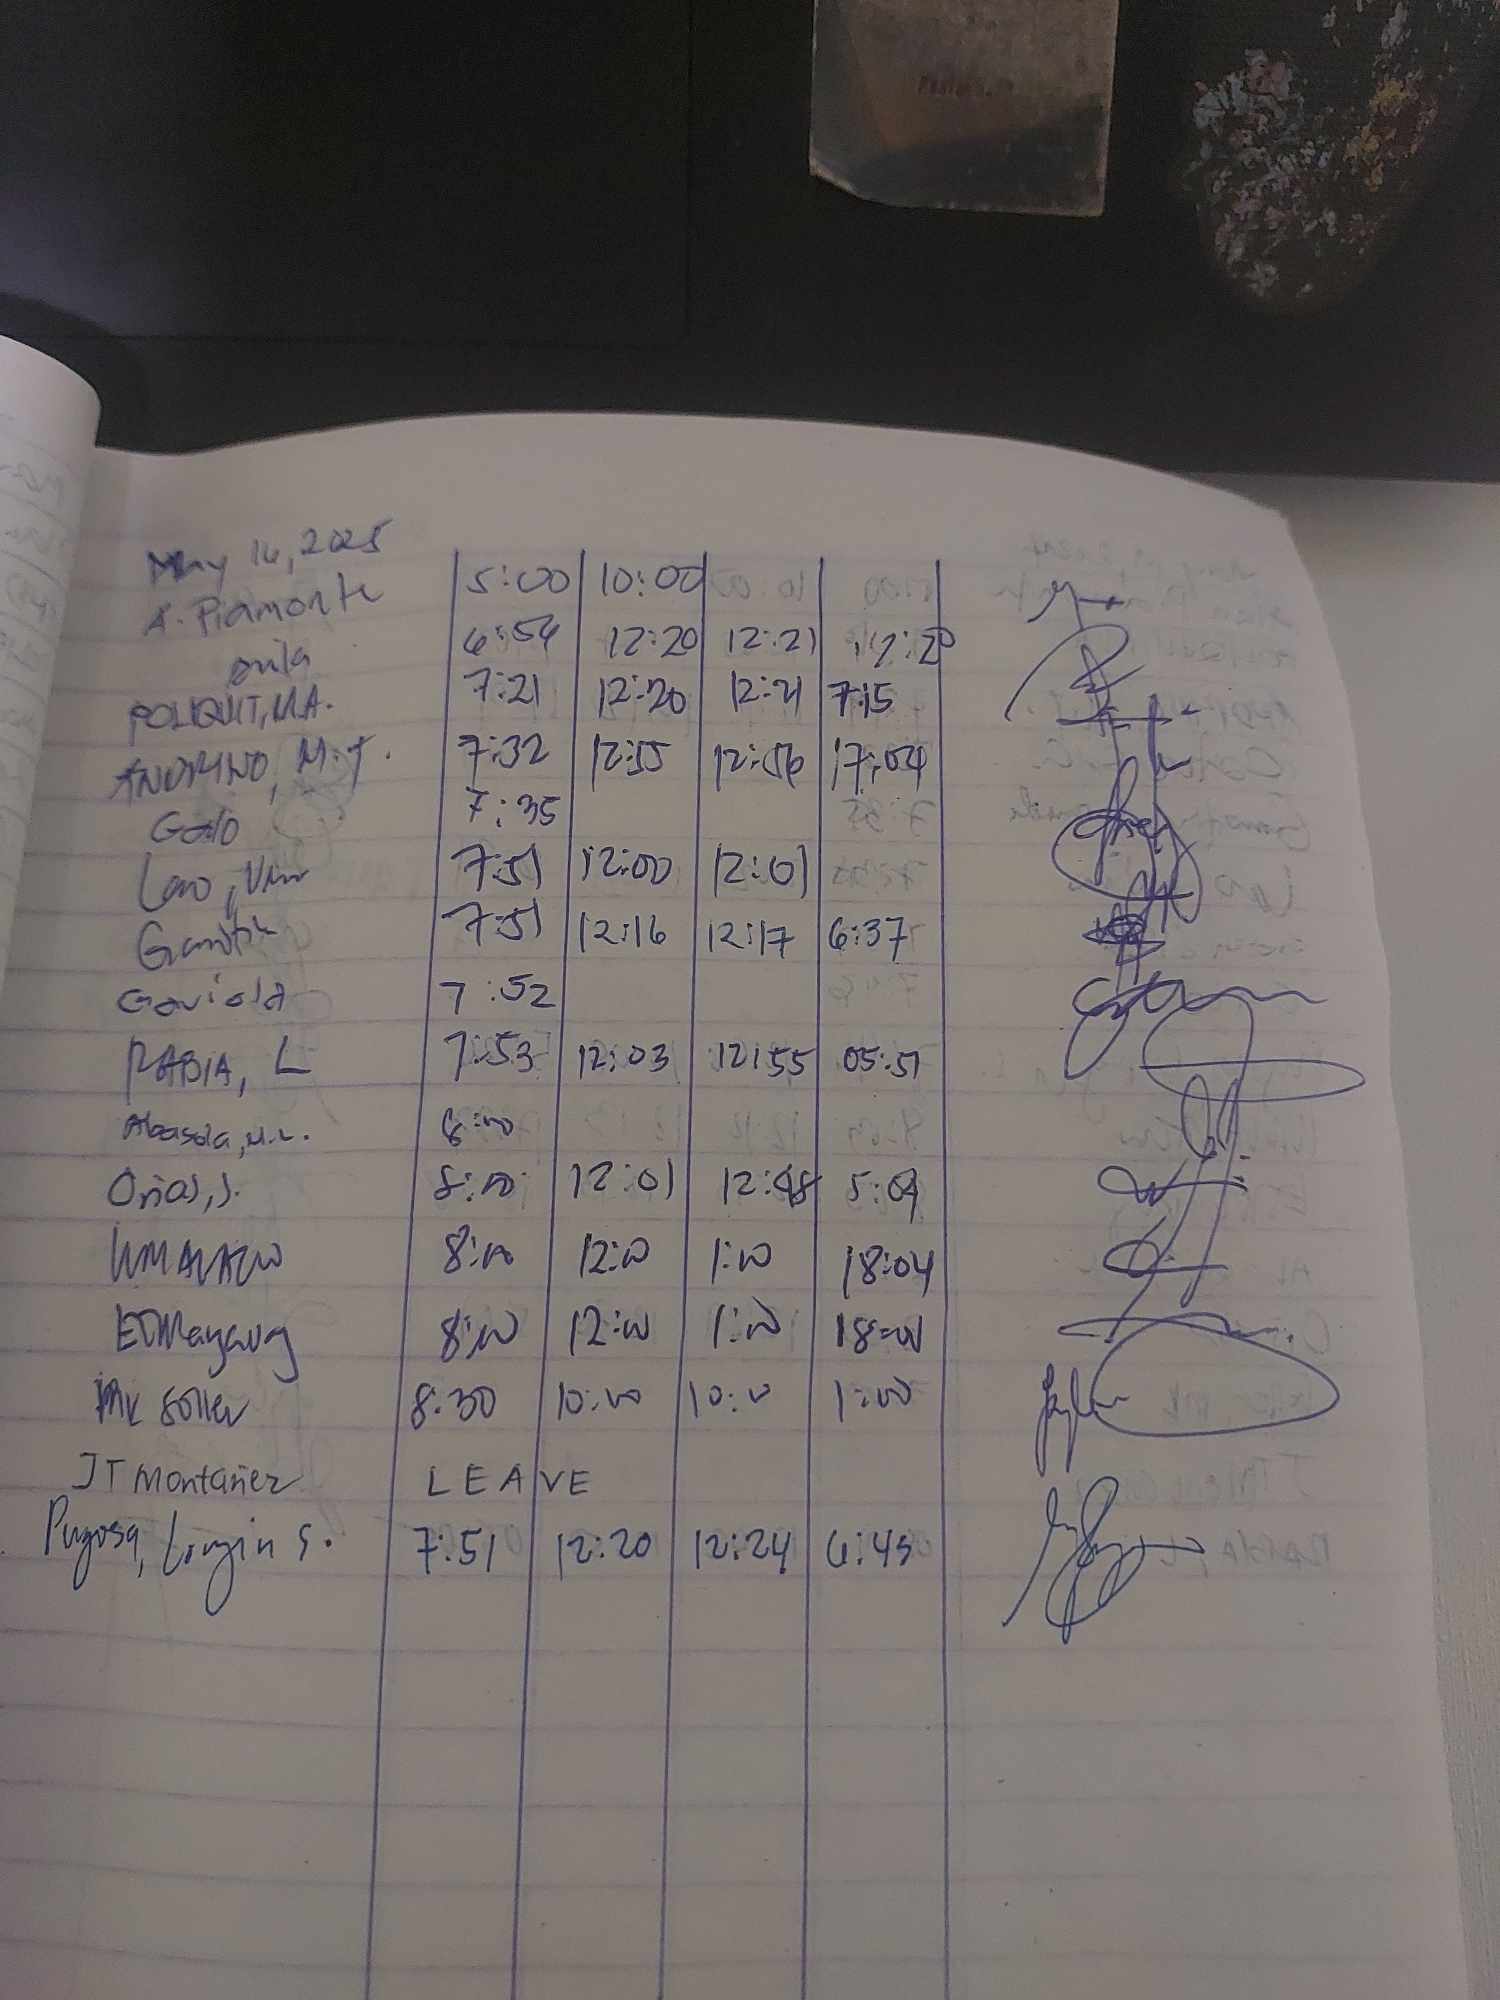 May 16, 2025
A. Piamonte 5:00 10:00
6:54 12:20 12:21 17:20
POLIQUIT, M.A. 7:21 12:20 12:21 7:15
ANORMNO, M.J. 7:32 12:55 12:56 17:04
Golo 7:35
Lao, Vin 7:51 12:00 12:01
7:51 12:16 12:17 6:37
Gaviola 7:52
RABIA, L 7:53 12:03 12:55 05:51
Abasola, M.L. 8:00
Oñas, J. 8:00 12:01 12:48 5:04
8:00 12:00 1:00 18:04
8:00 12:00 1:00 18:00
MK Soller 8:30 10:00 10:00 1:00
JT Montañez LEAVE
Pugosa, Longin S. 7:51 12:20 12:24 6:45